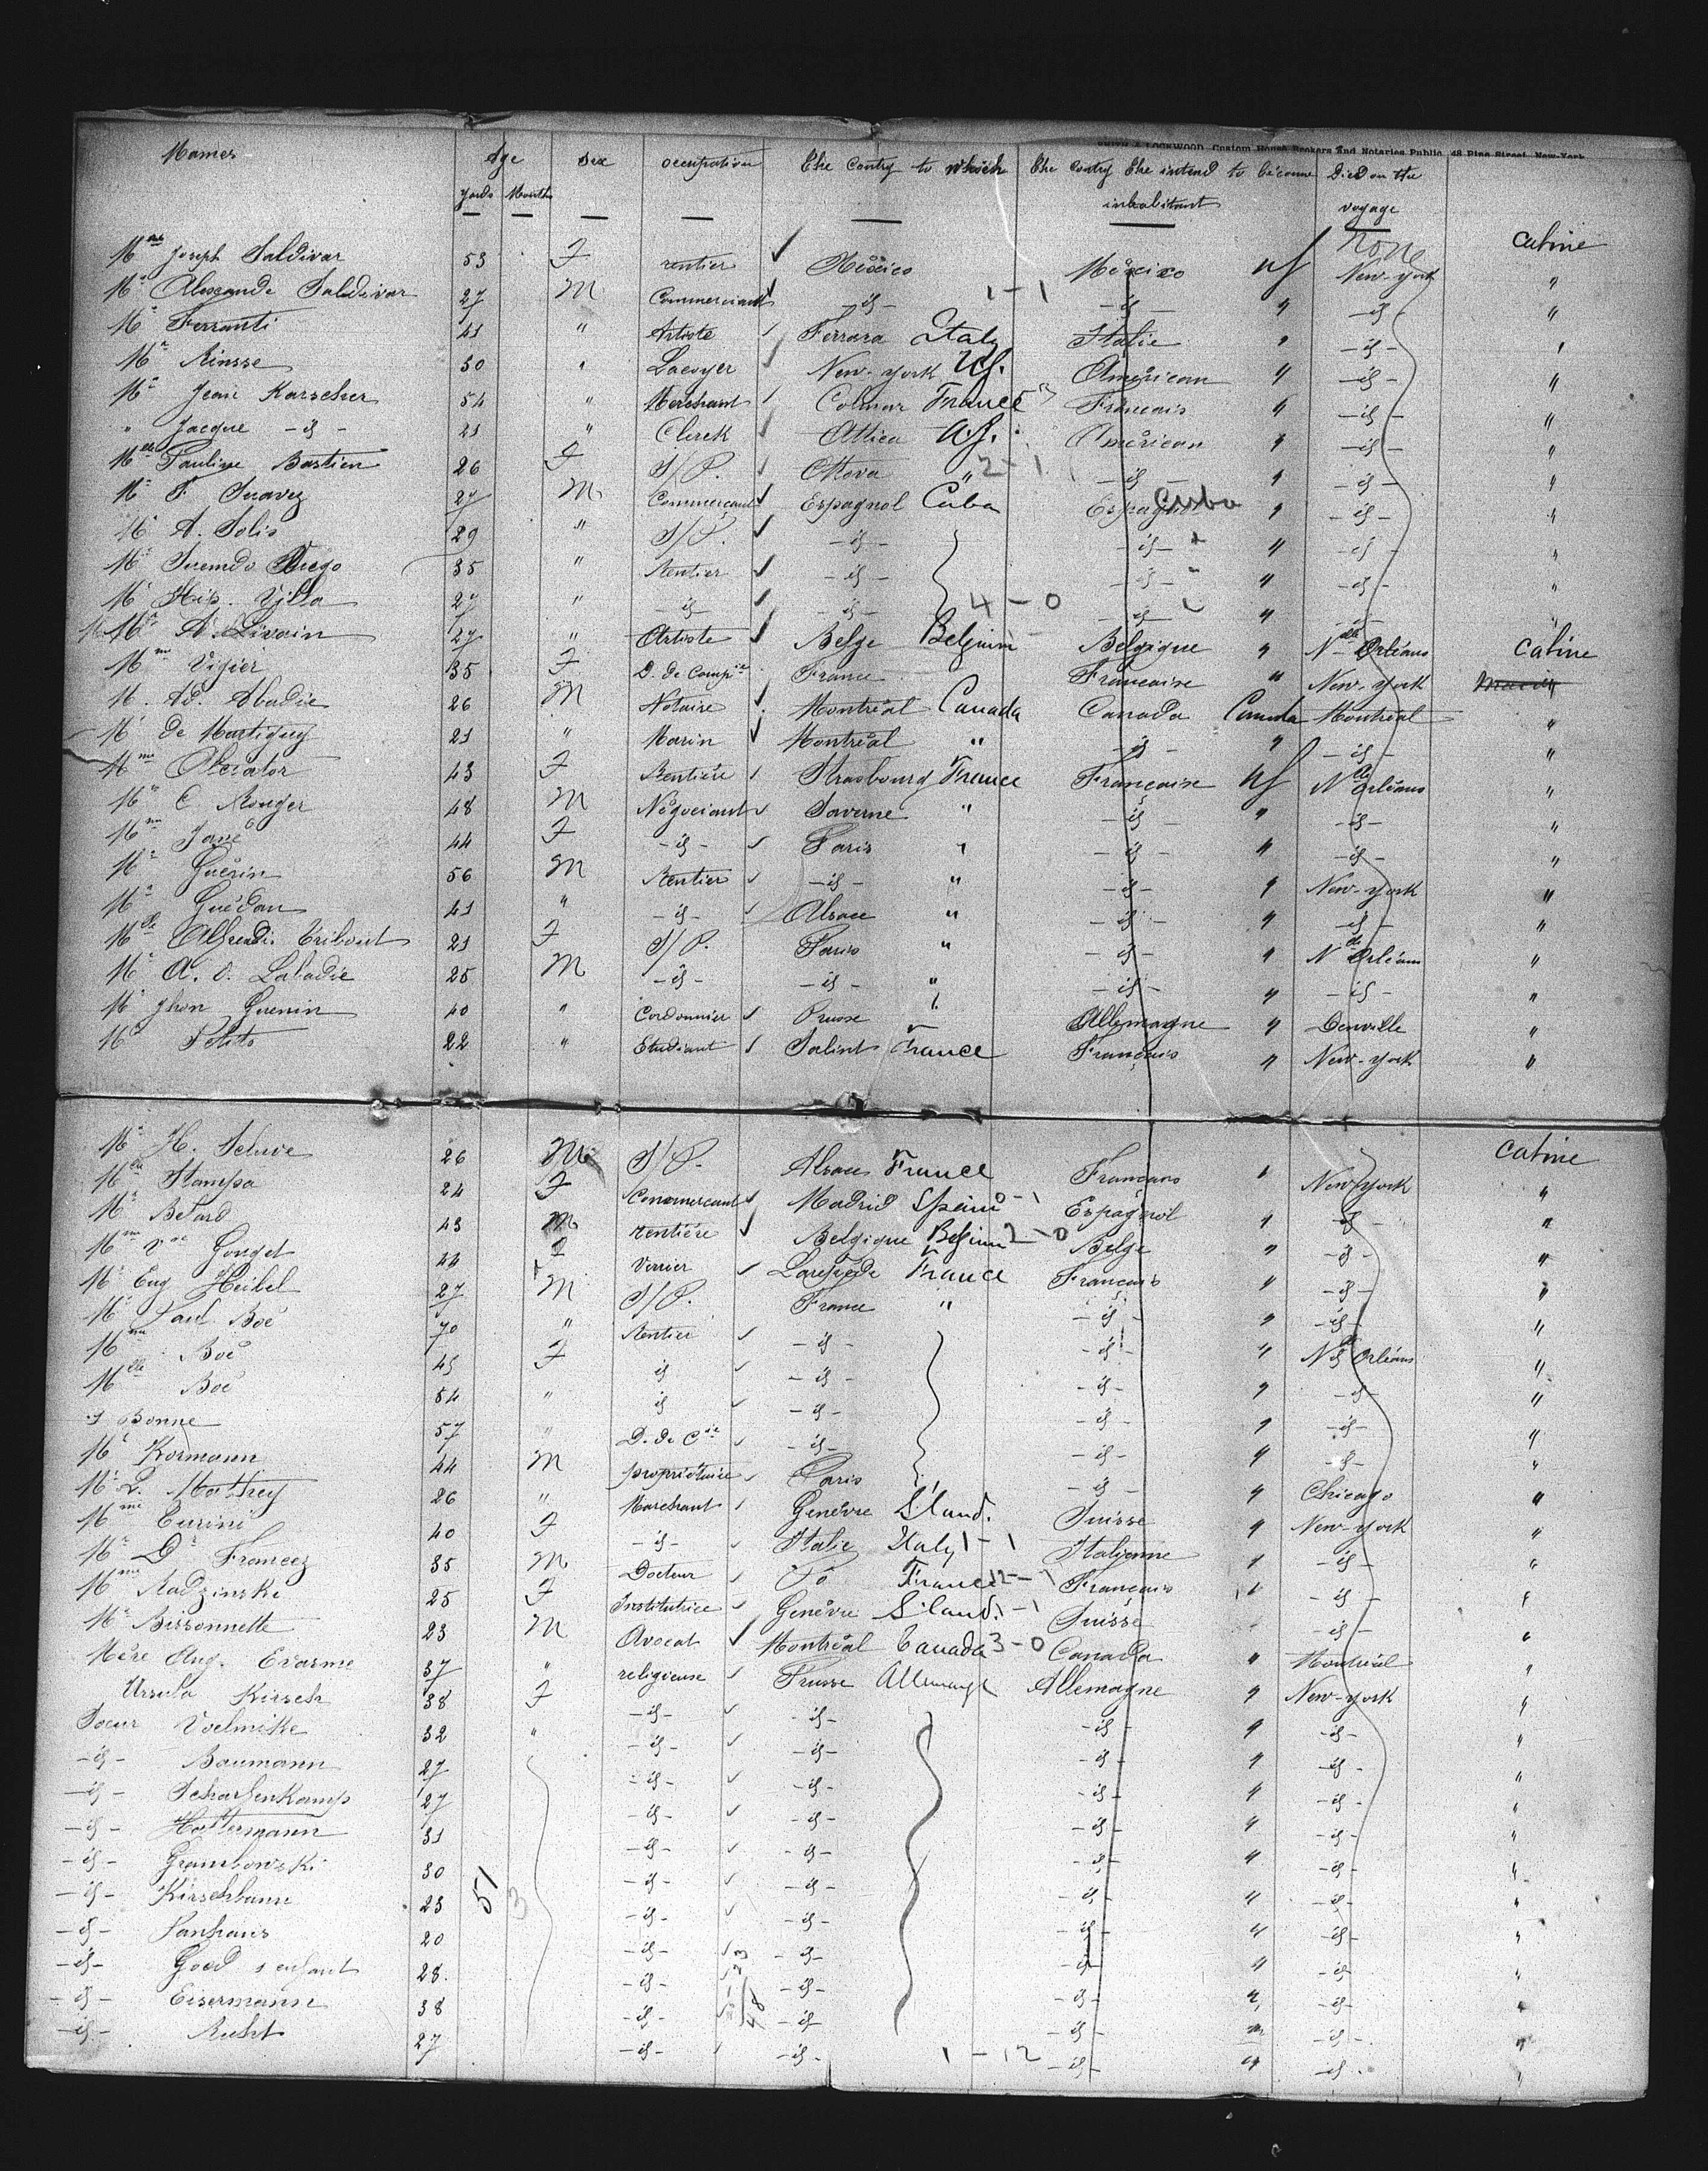 SMITH & LOCKWOOD, Custom House Brokers and Notaries Public, 48 Pine Street, New-York
Names Age Sex occupation The Contry to which The contry the intend to become Died on the
Years Months inhabitant voyage
none
Mme Joseph Saldivar 53 F rentier Mexico Mexico US New-York Cabine
Mr Alexandre Saldivar 27 M Commercant -id- 1-1 -id- " -id- "
Mr Ferranti 41 " Artiste Ferrara Italy Italie " -id- "
Mr Rinsse 30 " Lawyer New-York US. Américan " -id- "
Mr Jean Karscher 54 " Merchant Colmar France Francais " -id- "
" Jacque -id- 21 " Clerck Attica US. Américan " -id- "
Mlle Pauline Bastien 26 F S/P. Ottova " 2-1 -id- " -id- "
Mr F. Suavez 27 M Commercant Espagnol Cuba Espagnol Cuba " -id- "
Mr A. Solis 29 " S/P. -id- -id- " -id- "
Mr Diego 35 " Rentier -id- -id- " -id- "
Mr Villa 27 " -id- -id- 4-0 -id- " -id- "
Mr A. Livain 27 " Artiste Belge Belgium Belgique " Nlle Orléans Cabine
Mme Vigier 35 F D. de Compie France Francaise " New-York
M. Ad. Abadie 26 M Notaire Montréal Canada Canada Canada Montréal "
Mr de Martigny 21 " Marin Montréal " -id- " -id- "
Mme 43 F Rentière Strasbourg France Francaise US Nlle Orléans "
Mr E. Rouger 48 M Négociant Saverne " -id- " -id- "
Mme Jané 44 F -id- Paris " -id- " -id- "
Mr Guérin 56 M Rentier -id- " -id- " New-York "
Mr Guédan 41 " -id- Alsace " -id- " -id- "
Mlle Tribout 21 F S/P. Paris " -id- " Nlle Orléans "
Mr A. Labadie 25 M -id- -id- " -id- " -id- "
Mr Jhon Guenin 40 " Cordonnier Prusse Allemagne " Denville "
Mr Petito 22 " Etudiant Salint France Francais " New-York "
Mr H. Schwe 26 M S/P. Alsace France Francais " New York Cabine
Mlle Stampa 24 F Commercant Madrid Spain 0-1 Espagnol " id "
Mr Belard 43 M rentière Belgique Belgium 2-0 Belge " -id- "
Mme Vve Gouget 44 F Verrier France Francais " -id- "
Mr Eug Heibel 27 M S/P. France " -id- " -id- "
Mr Paul Boé 70 " Rentier -id- -id- " Nlle Orléans "
Mme Boé 45 F id -id- -id- " -id- "
Mlle Boé 54 " id -id- -id- " -id- "
1 Bonne 57 " D. de Cie -id- -id- " -id- "
Mr Kormann 44 M propriétaire Paris -id- " Chicago "
Mr L. Mattrey 26 " Marchant Genêvre S'land. Suisse " New-York "
Mme Turini 40 F -id- Italie Italy 1-1 Italienne " -id- "
Mr Dr Francez 35 M Docteur France Francais " -id- "
Mme Radzinski 25 F Institutrice Genêvre S'land. -1 Suisse -id- "
Mr Bissonnette 23 M Avocat Montréal Canada 3-0 Canada " Montréal "
Mère Aug. Erasme 37 " religieuse Prusse Allemangn Allemagne " New-York "
Ursula Kirsch 38 F -id- -id- -id- " -id- "
Soeur Voelmike 32 " -id- -id- -id- " -id- "
-id- Baumann 27 -id- -id- -id- " -id- "
-id- Scharfenkamp 27 -id- -id- -id- " -id- "
-id- Hattermann 31 -id- -id- -id- " -id- "
-id- Grambowski 30 -id- -id- -id- " -id- "
-id- Kirschbaum 23 51 3 -id- -id- -id- " -id- "
-id- Sanhaus 20 -id- -id- -id- " -id- "
-id- Goed 1 enfant 28. -id- -id- -id- " -id- "
-id- Eisermann 38 -id- 48 -id- -id- " -id- "
-id- Rucht 27 -id- -id- 1-12 -id- " -id- "